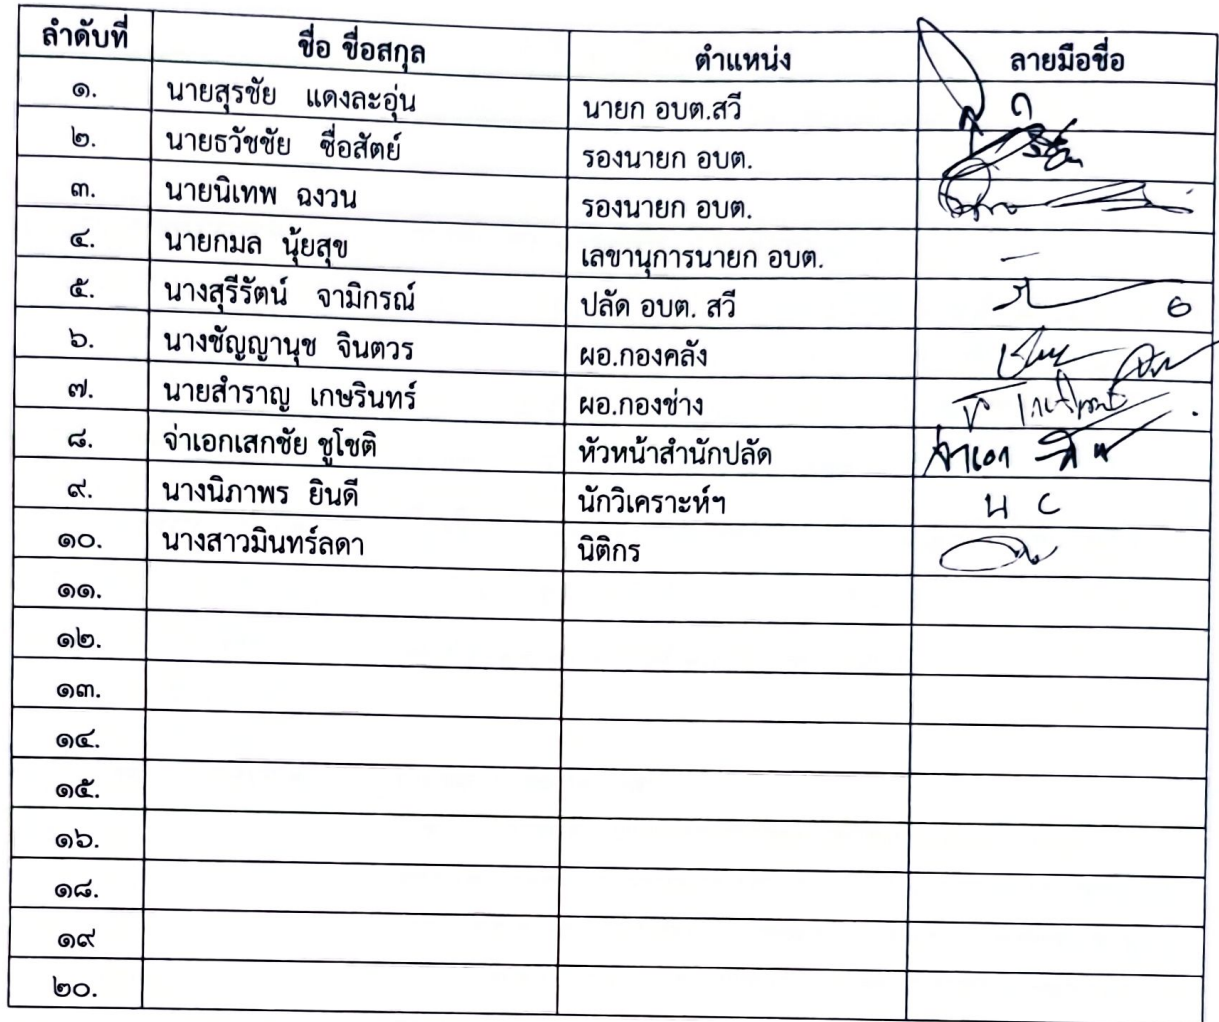 ลำดับที่ ชื่อ ชื่อสกุล ตำแหน่ง ลายมือชื่อ
๑. นายสุรชัย แดงละอุ่น นายก อบต.สวี
๒. นายธวัชชัย ชื่อสัตย์ รองนายก อบต.
๓. นายนิเทพ ฉงวน รองนายก อบต.
๔. นายกมล นุ้ยสุข เลขานุการนายก อบต. –
๕. นางสุรีรัตน์ จามิกรณ์ ปลัด อบต. สวี
๖. นางชัญญานุช จินตวร ผอ.กองคลัง
๗. นายสำราญ เกษรินทร์ ผอ.กองช่าง
๘. จ่าเอกเสกชัย ชูโชติ หัวหน้าสำนักปลัด จ่าเอก
๙. นางนิภาพร ยินดี นักวิเคราะห์ฯ
๑๐. นางสาวมินทร์ลดา นิติกร
๑๑.
๑๒.
๑๓.
๑๔.
๑๕.
๑๖.
๑๘.
๑๙
๒๐.